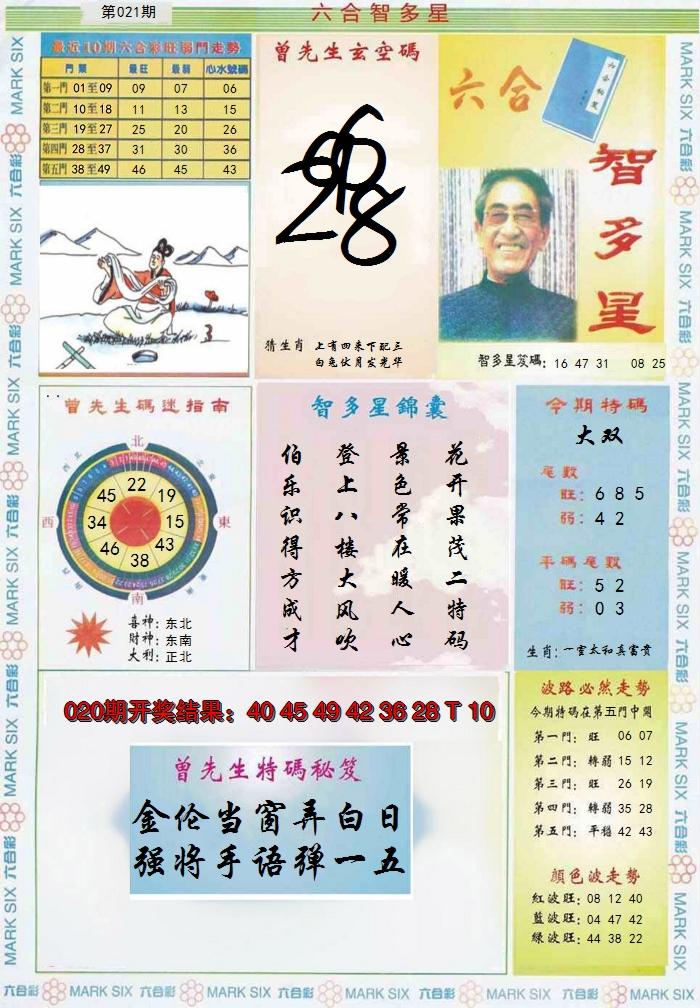 第021期
六合智多星
最近10期六合彩旺弱門走勢
門類 最旺 最弱 心水號碼
第一門 01至09 09 07 06
第二門 10至18 11 13 15
第三門 19至27 25 20 26
第四門 28至37 31 30 36
第五門 38至49 46 45 43
曾先生玄空碼
猜生肖 上有四来下配三
白兔伏月发光华
六合
智多星
智多星笈碼: 16 47 31 08 25
曾先生碼迷指南
北
西
東
南
22
19
15
43
38
46
34
45
喜神: 东北
財神: 东南
大利: 正北
智多星錦囊
花开果茂二特码
景色常在暖人心
登上八楼大风吹
伯乐识得方成才
今期特碼
大双
尾數
旺: 6 8 5
弱: 4 2
平碼尾數
旺: 5 2
弱: 0 3
生肖: 一室太和真富贵
020期开奖结果: 40 45 49 42 36 28 T 10
曾先生特碼秘笈
金伦当窗弄白日
强将手语弹一五
波路必然走勢
今期特碼在第五門中開
第一門: 旺 06 07
第二門: 轉弱 15 12
第三門: 旺 26 19
第四門: 轉弱 35 28
第五門: 平穩 42 43
顏色波走勢
紅波旺: 08 12 40
藍波旺: 04 47 42
綠波旺: 44 38 22
MARK SIX 六合彩